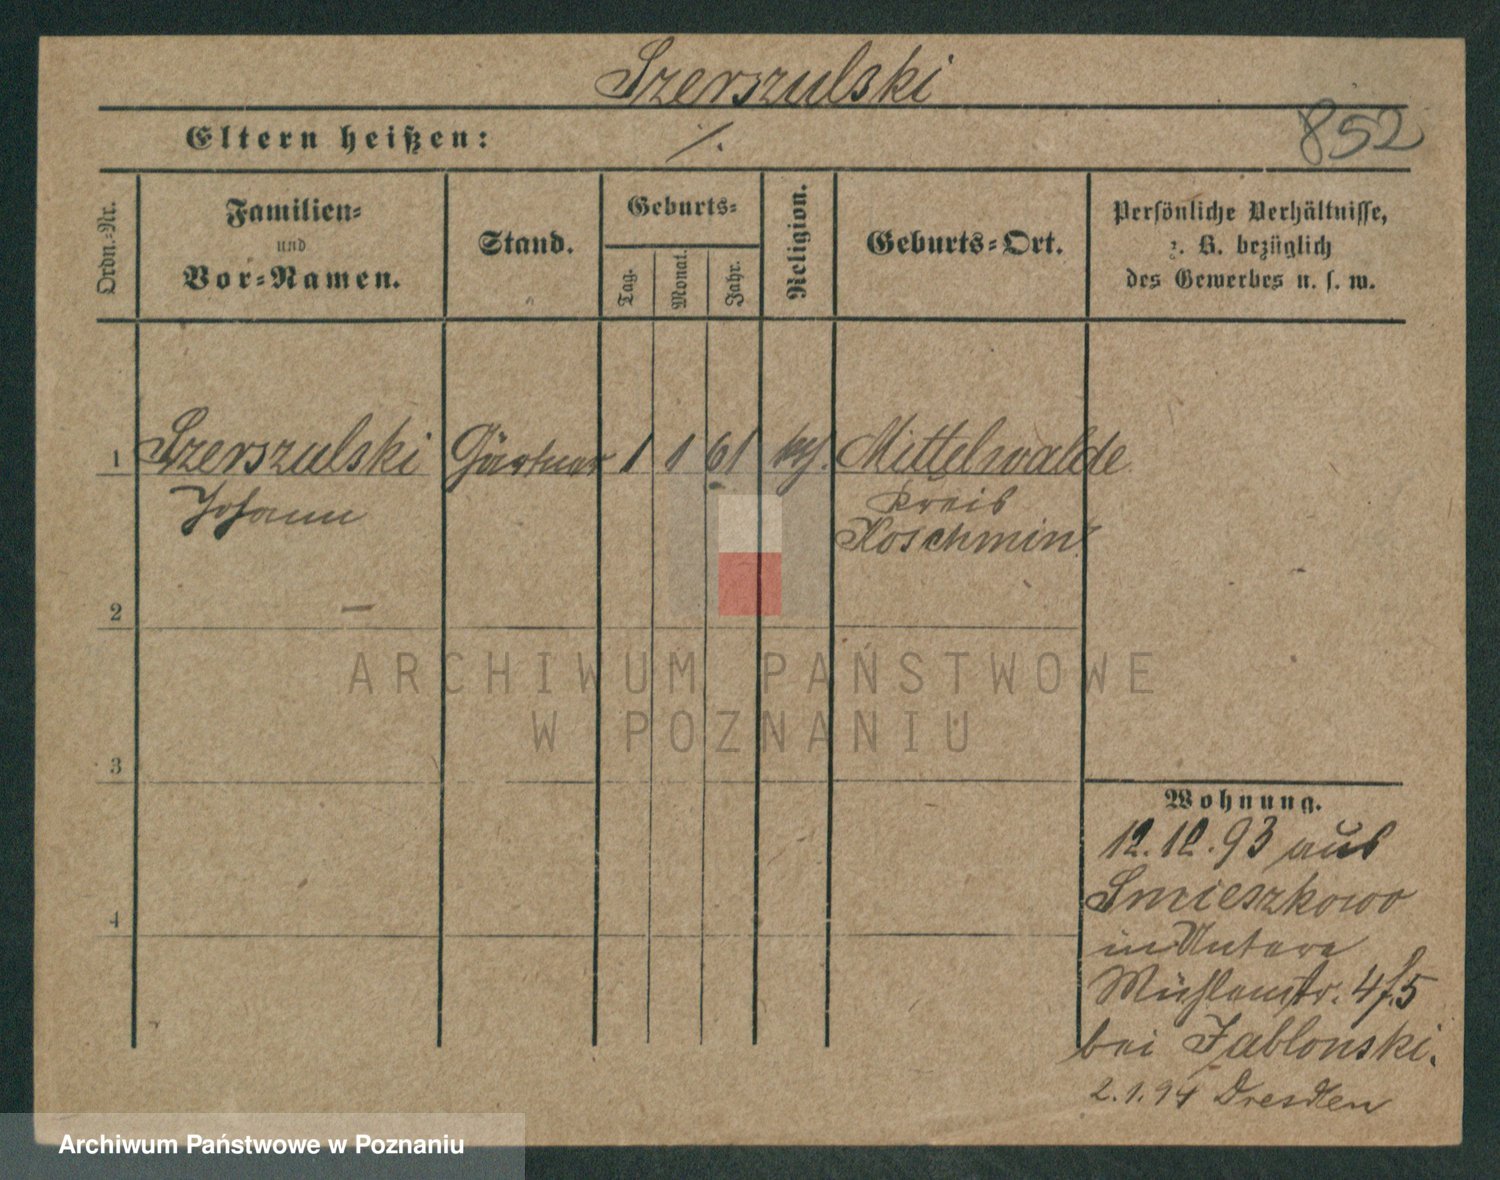 Szerszulski
Eltern heißen: ./.
852
Ordn.-Nr.
Familien-
und
Vor-Namen.
Stand.
Geburts-
Tag.
Monat.
Jahr.
Religion.
Geburts-Ort.
Persönliche Verhältnisse,
z. B. bezüglich
des Gewerbes u. s. w.
1 Szerszulski Gärtner 1 1 61 Mittelwalde
Johann
Kreis
Koschmin
2
3
4
Wohnung.
12.12.93 aus
Smieszkowo
in Untere
Mühlenstr. 4/5
bei Jablonski.
2.1.94 Dresden
ARCHIWUM PAŃSTWOWE
W POZNANIU
Archiwum Państwowe w Poznaniu